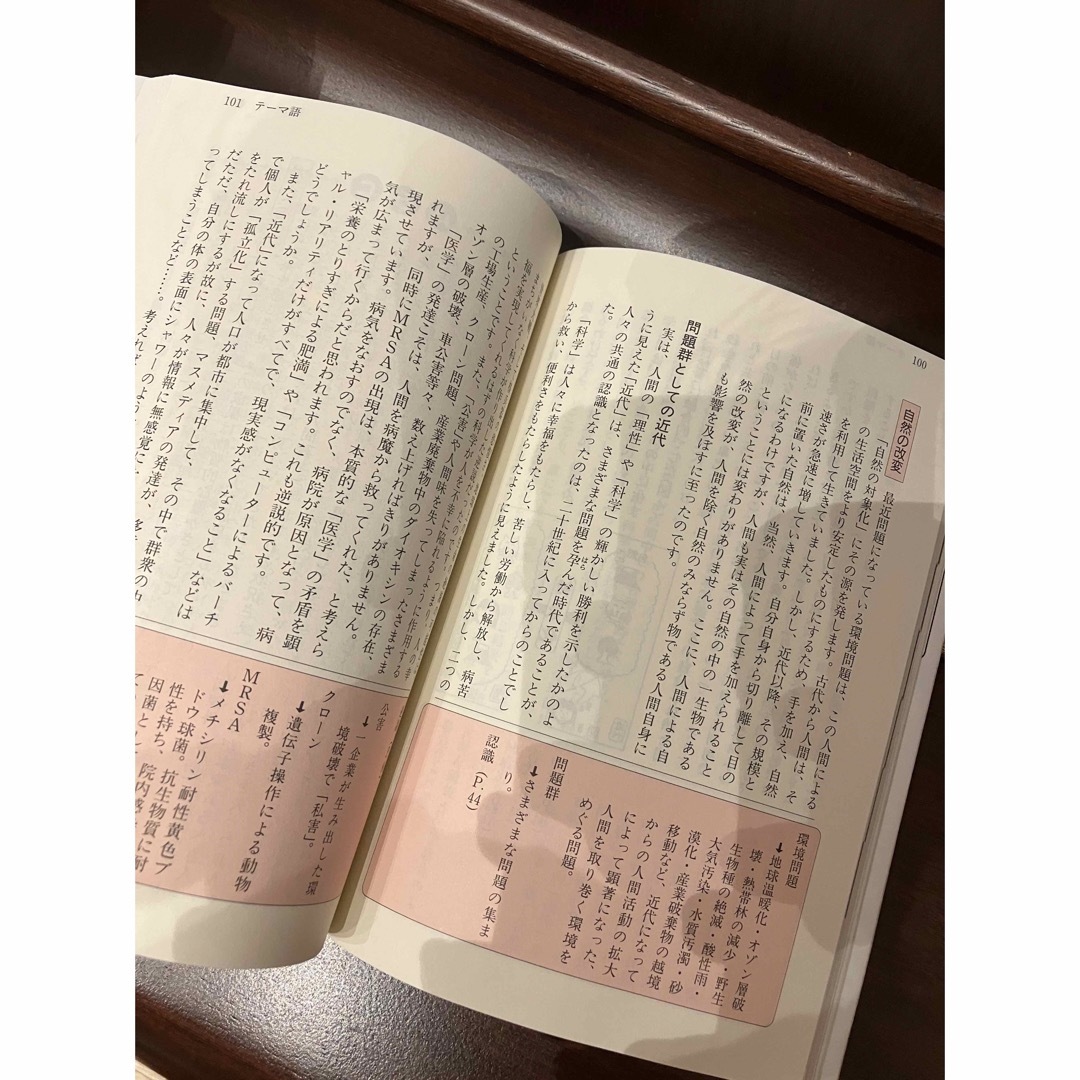 100
自然の改変
最近問題になっている環境問題は、この人間による
「自然の対象化」にその源を発します。古代から人間は、そ
の生活空間をより安定したものにするため、手を加え、自然
を利用して生きていました。しかし、近代以降、その規模と
速さが急速に増していきます。自分自身から切り離して目の
前に置いた自然は、当然、人間によって手を加えられること
になるわけですが、人間も実はその自然の中の一生物である
ということには変わりがありません。ここに、人間による自
然の改変が、人間を除く自然のみならず物である人間自身に
も影響を及ぼすに至ったのです。
問題群としての近代
実は、人間の「理性」や「科学」の輝かしい勝利を示したかのよ
うに見えた「近代」は、さまざまな問題を孕んだ時代であることが、
はら
人々の共通の認識となったのは、二十世紀に入ってからのことでし
た。
「科学」は人々に幸福をもたらし、苦しい労働から解放し、病苦
から救い、便利さをもたらしたように見えました。しかし、二つの
環境問題
→地球温暖化・オゾン層破
壊・熱帯林の減少・野生
生物種の絶滅・酸性雨・
大気汚染・水質汚濁・砂
漠化・産業破棄物の越境
移動など、近代になって
からの人間活動の拡大
によって顕著になった、
人間を取り巻く環境を
めぐる問題。
問題群
→さまざまな問題の集ま
り。
認識（P.44）
101 テーマ語
ということです。また、
の工場生産、クローン問題、産業廃棄物中のダイオキシンの存在、
オゾン層の破壊、車公害等々、数え上げればきりがありません。
「医学」の発達こそは、人間を病魔から救ってくれた、と考えら
れますが、同時にMRSAの出現は、本質的な「医学」の矛盾を顕
現させています。病気をなおすのでなく、病院が原因となって、病
気が広まって行くからだと思われます。これも逆説的です。
「栄養のとりすぎによる肥満」や「コンピューターによるバーチ
ャル・リアリティだけがすべてで、現実感がなくなること」などは
どうでしょうか。
また、「近代」になって人口が都市に集中して、その中で群衆の中
で個人が「孤立化」する問題、マスメディアの発達が、
をたれ流しにするが故に、人々が情報に無感覚に、
だただ、自分の体の表面にシャワーのよう
ってしまうことなど……。考えれば
公害
→一企業が生み出した環
境破壊で「私害」。
クローン
→遺伝子操作による動物
複製。
MRSA
→メチシリン耐性黄色ブ
ドウ球菌。抗生物質に耐
性を持ち、院内
因菌とし